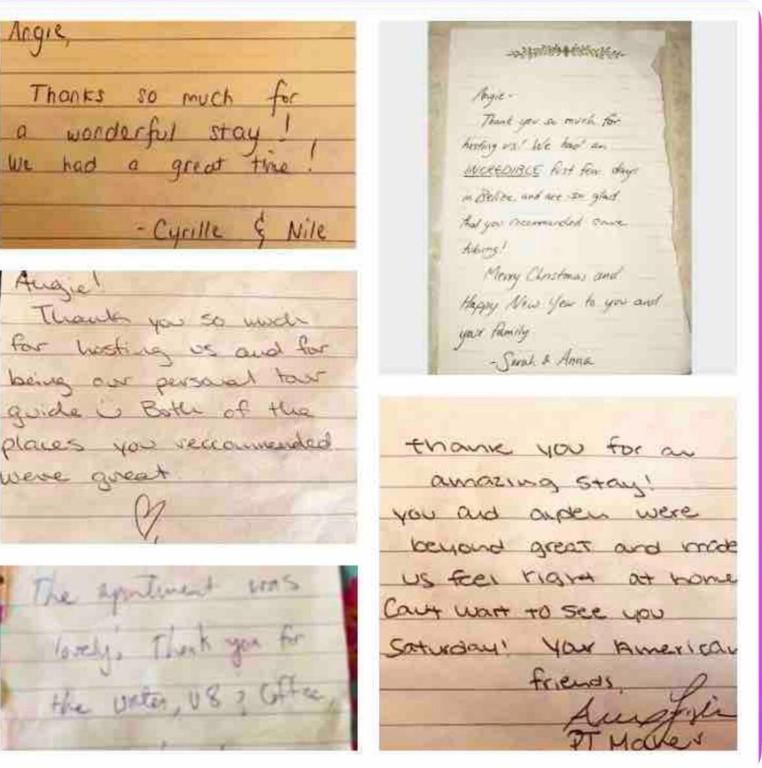 Angie,
Thanks so much for
a wonderful stay!
We had a great time!
- Cyrille & Nile
Angie!
Thank you so much
for hosting us and for
being our personal tour
guide Both of the
places you reccommended
were great
The apartment was
lovely. Thank you for
the water, V8 & Coffee,
Angie-
Thank you so much for
hosting us! We had an
INCREDIBLE first few days
in Belize and are so glad
that you recommended cave
tubing!
Merry Christmas and
Happy New Year to you and
your family
- Sarah & Anna
thank you for an
amazing stay!
you and were
beyond great and made
us feel right at home
Can't wait to see you
Saturday! Your American
friends,